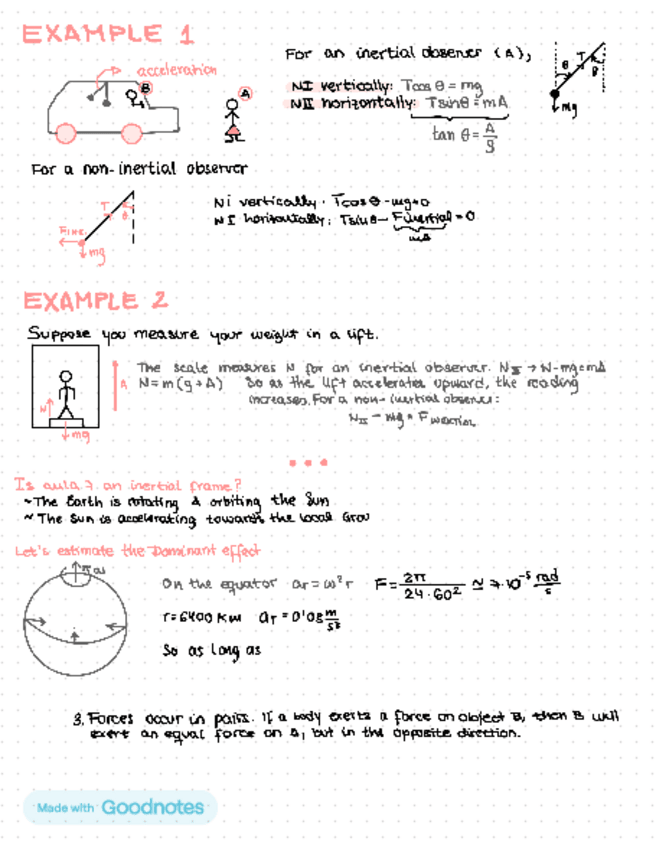 EXAMPLE 1
For an inertial observer (A),
acceleration
B
A
NI vertically: Tcos θ = mg
NII horizontally: Tsinθ = mA
tan θ = A/g
θ T θ
mg
For a non-inertial observer
T θ
Fine.
mg
NI vertically: Tcosθ - mg=0
NI horizontally: Tsinθ - Finertial = 0
mA
EXAMPLE 2
Suppose you measure your weight in a lift.
The scale measures N for an inertial observer. NII → N-mg=mA
N=m(g+A) So as the lift accelerates upward, the reading
increases. For a non-inertial observer:
NII - mg = F inertial
A
N
mg
Is aula 7 an inertial frame?
~The Earth is rotating & orbiting the Sun
~ The Sun is accelerating towards the local Grou
Let's estimate the Dominant effect
On the equator ar=ω²r F= 2π/24·60² ≃ 7·10⁻⁵ rad/s
r=6400 Km ar=0'03 m/s²
So as long as
3. Forces occur in pairs. If a body exerts a force on object B, then B will
exert an equal force on A, but in the opposite direction.
Made with Goodnotes